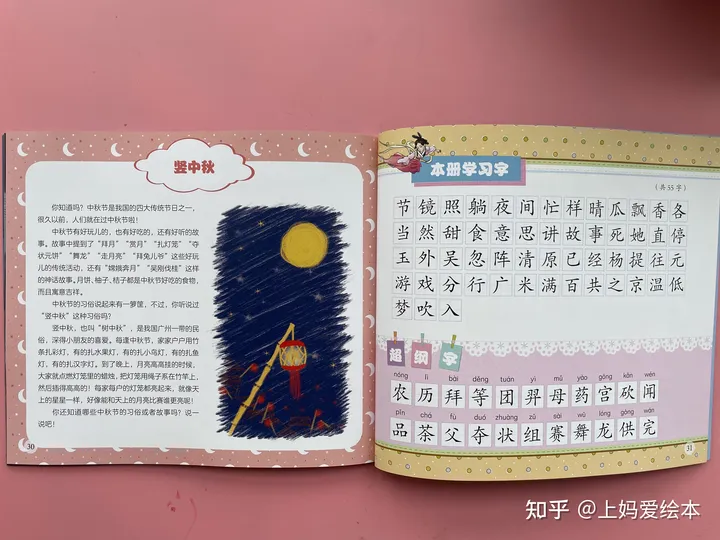 竖中秋
你知道吗？中秋节是我国的四大传统节日之一，
很久以前，人们就在过中秋节啦！
中秋节有好玩儿的，也有好吃的，还有好听的故
事。故事中提到了“拜月”“赏月”“扎灯笼”“夺
状元饼”“舞龙”“走月亮”“拜兔儿爷”这些好玩
儿的传统活动，还有“嫦娥奔月”“吴刚伐桂”这样
的神话故事。月饼、柚子、桔子都是中秋节好吃的食物，
而且寓意吉祥。
中秋节的习俗说起来有一箩筐，不过，你听说过
“竖中秋”这种习俗吗？
竖中秋，也叫“树中秋”，是我国广州一带的民
俗，深得小朋友的喜爱。每逢中秋节，家家户户用竹
条扎彩灯，有的扎水果灯，有的扎小鸟灯，有的扎鱼
灯，有的扎汉字灯。到了晚上，月亮高高挂的时候，
大家就点燃灯笼里的蜡烛，把灯笼用绳子系在竹竿上，
然后插得高高的！每家每户的灯笼都亮起来，就像天
上的星星一样，好像能和天上的月亮比赛谁更亮呢！
你还知道哪些中秋节的习俗或者故事吗？说一
说吧！
30
本册学习字
（共 55 字）
节镜照躺夜间忙样晴瓜飘香各
当然甜食意思讲故事死她直停
玉外吴忽阵清原已经杨提往元
游戏分行广米满百共之京温低
梦吹入
超纲字
nóng lì bài děng tuán yì mǔ yào gōng kǎn wén
农历拜等团羿母药宫砍闻
pǐn chá fù duó zhuàng zǔ sài wǔ lóng gòng wán
品茶父夺状组赛舞龙供完
31
知乎 @上妈爱绘本